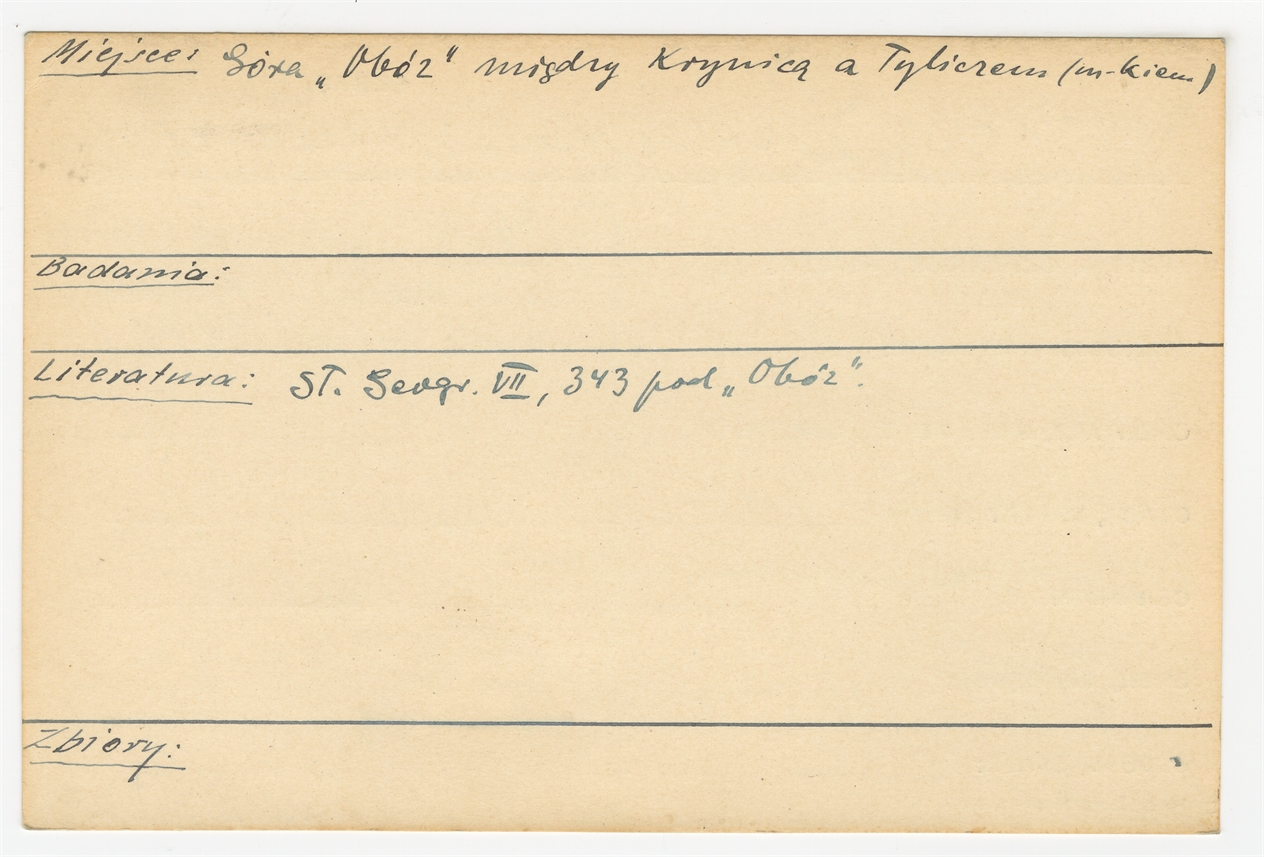 Miejsce: Góra „Obóz" między Krynicą a Tyliczem (m-kiem)
Badania:
Literatura: Sł. Geogr. VII, 343 pod „Obóz".
Zbiory: